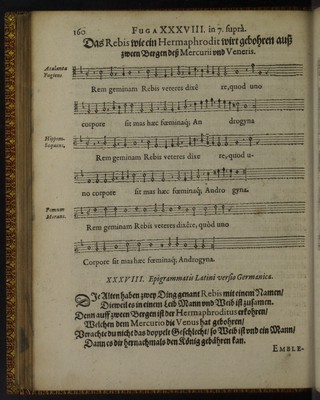 160 FUGA XXXVIII. in 7. suprà.
Das Rebis wie ein Hermaphrodit wirt gebohren auß
zween Bergen deß Mercurii vnd Veneris.
Atalanta
Fugiens.
Rem geminam Rebis veteres dixê re, quod uno
corpore sit mas hæc fœminaq;, An drogyna
Hippom.
Sequens.
Rem geminam Rebis veteres dixe re, quod u-
no corpore sit mas hæc fœminaq;, Andro gyna.
Pomum
Morans.
Rem geminam Rebis veteres dixêre, quòd uno
Corpore sit mas hæc fœminaq;, Androgyna.
XXXVIII. Epigrammatis Latini versio Germanica.
DIe Alten haben zwey Ding genant Rebis mit einem Namen/
Dieweil es in einem Leib Mann und Weib ist zusamen.
Denn auff zween Bergen ist der Hermaphroditus erkohren/
Welchen dem Mercurio die Venus hat gebohren/
Verachte du nicht das doppelt Geschlecht/ so Weib ist vnd ein Mann/
Dann es dir hernachmals den König gebähren kan.
EMBLE-